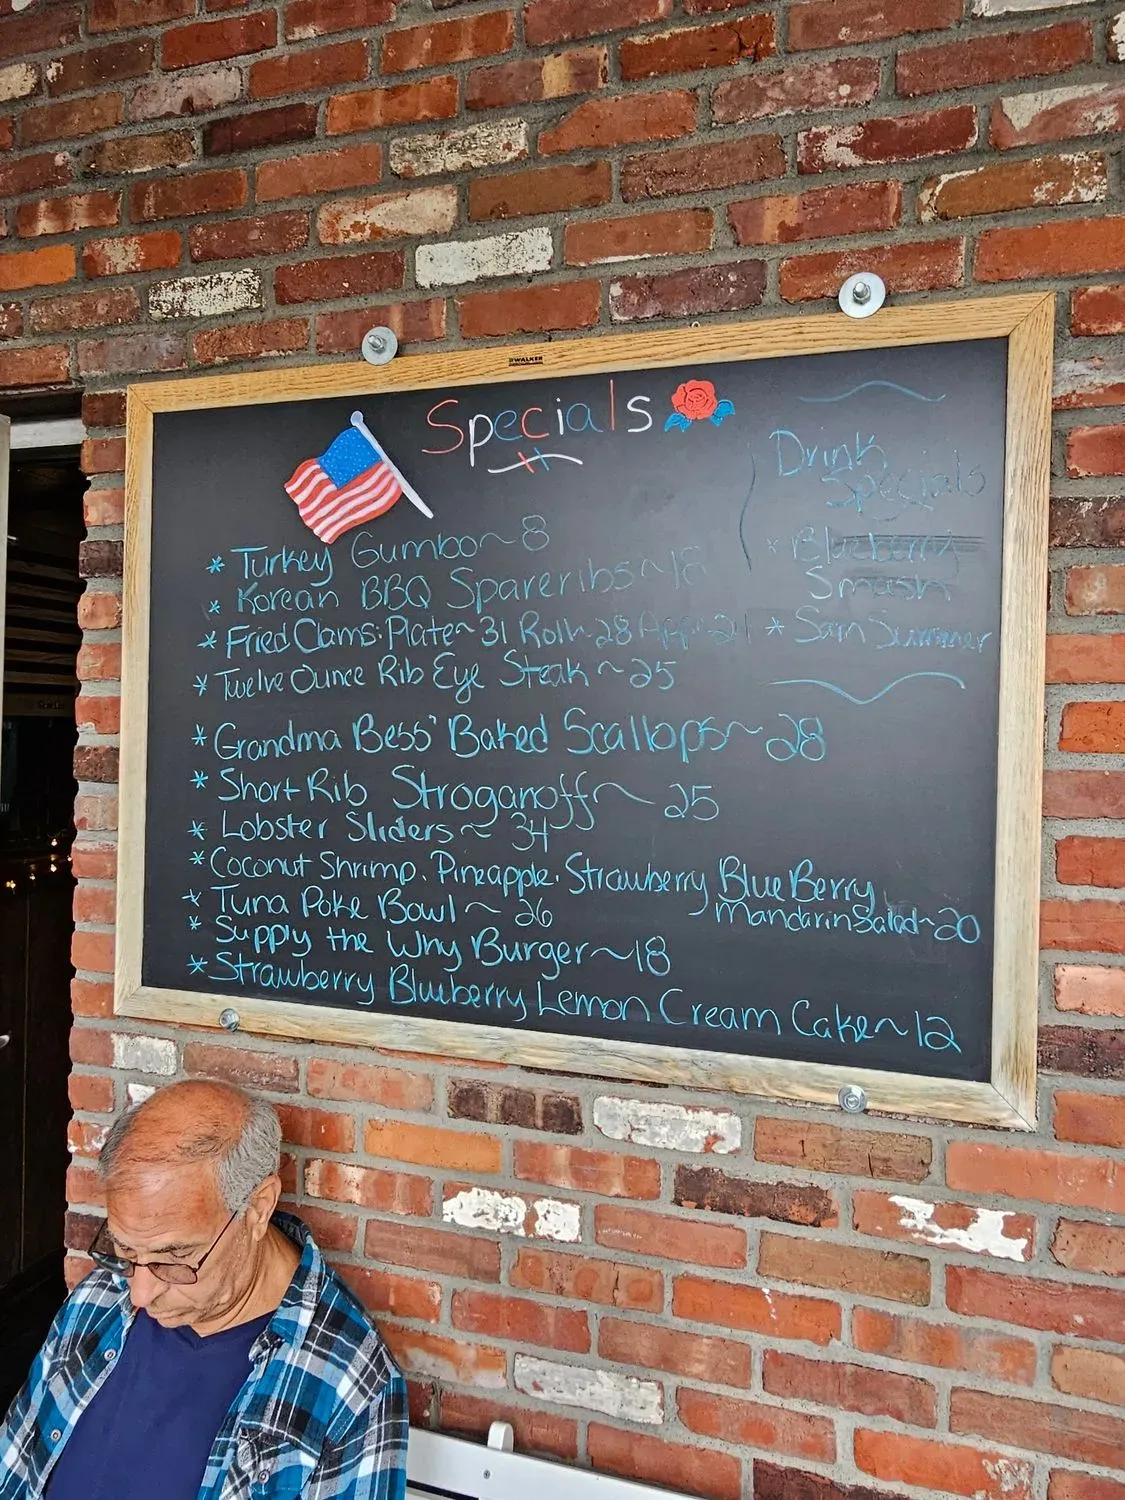 WALKER
Specials
* Turkey Gumbo ~ 8
* Korean BBQ Spareribs ~
* Fried Clams: Plate ~ 31 Roll ~ 28 App ~ 21
* Twelve Ounce Rib Eye Steak ~ 25
* Grandma Bess' Baked Scallops ~ 28
* Short Rib Stroganoff ~ 25
* Lobster Sliders ~ 34
* Coconut Shrimp, Pineapple, Strawberry BlueBerry,
Mandarin Salad ~ 20
* Tuna Poke Bowl ~ 26
* Supply the Why Burger ~ 18
* Strawberry Blueberry Lemon Cream Cake ~ 12
Drink
Specials
* Blueberry
Smash
* Sam Summer